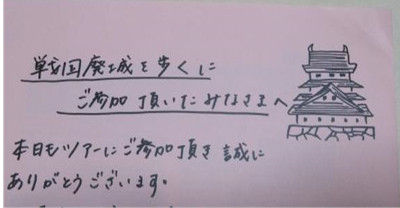 戦国廃城を歩くに
ご参加頂いたみなさまへ
本日もツアーにご参加頂き誠に
ありがとうございます。